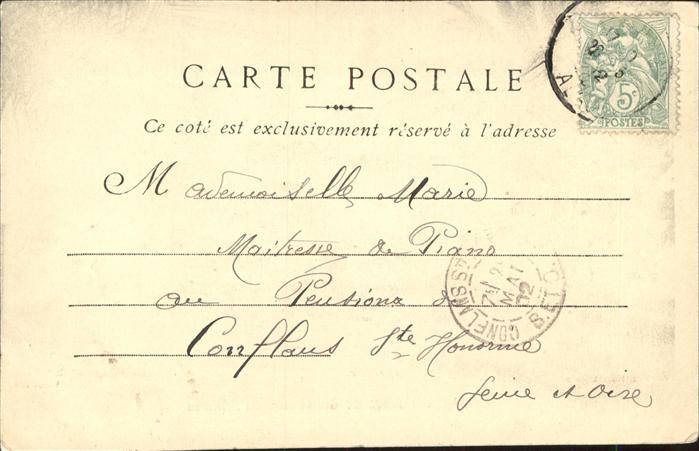 CARTE POSTALE
Ce coté est exclusivement réservé à l'adresse
5c
POSTES
Mademoiselle Marie
Maitresse de Piano
au Pensionat de
Conflans Ste Honorine
Seine et Oise
CONFLANS
MAI
02
S.ET.O.